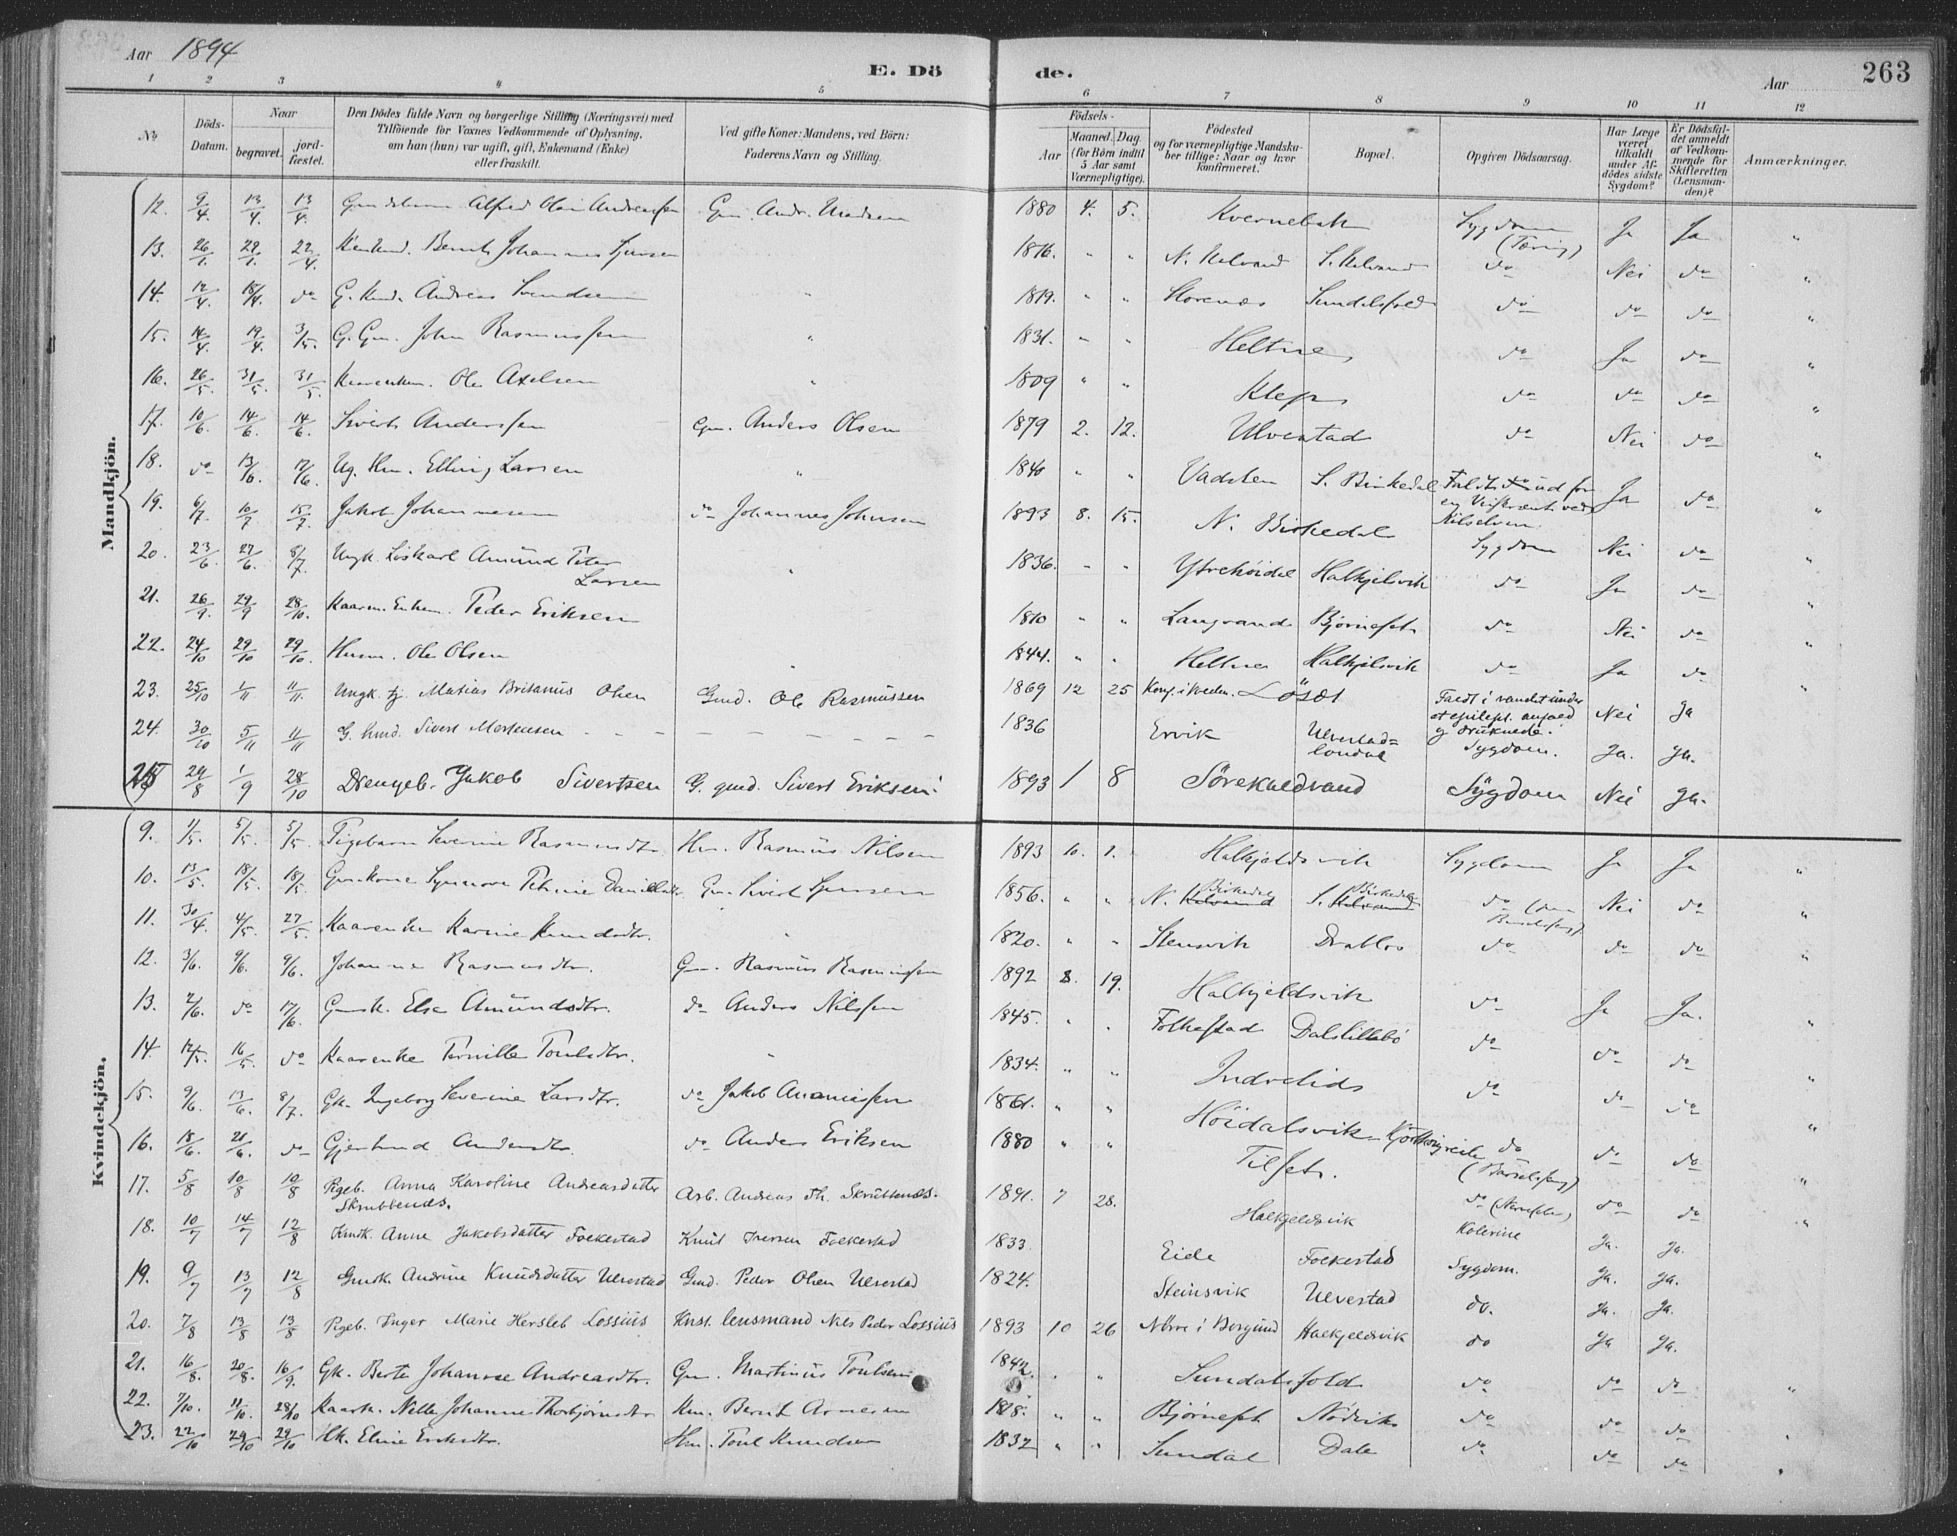 Aar 1894
E. Dö de.
Aar 263
1 2 3 4 5 6 7 8 9 10 11 12
No
Döds-Datum.
Naar
begravet.
jord-fæstet.
Den Dödes fulde Navn og borgerlige Stilling (Næringsvei) med
Tilföiende for Voxnes Vedkommende af Oplysning,
om han (hun) var ugift, gift, Enkemand (Enke)
eller fraskilt.
Ved gifte Koner: Mandens, ved Börn:
Faderens Navn og Stilling.
Födsels-
Aar
Maaned. Dag.
(for Börn indtil 5 Aar samt Værnepligtige).
Födested
og for værnepligtige Mandska-
ber tillige: Naar og hvor
konfirmeret.
Bopæl.
Opgiven Dödsaarsag.
Har Læge været tilkaldt under Af-dödes sidste Sygdom?
Er Dödsfal-det anmeldt af Vedkom-mende for Skifteretten (Lensman-den)?
Anmærkninger.
Mandkjön.
12. 9/4. 13/4. 13/4. Alfred Olai Andreassen Gm. Andr. Madsen 1880 4. 5. Kvernebak Sygdom (Tæring) Ja Ja "
13. 26/1. 29/1. 22/4. Bernt Johannes 1876. " " N. Kalvand S. Kalvand do Nei do "
14. 12/4. 18/4. do G. Kmd. Andreas Svendsen " 1819. " " Storenæs Sundalsfold do do do "
15. 14/4. 19/4. 3/5. G. Gm. John Rasmussen " 1831. " " Heltne do Ja do "
16. 26/5. 31/5. 31/5. Ole Axelsen " 1809 " " Klep do do do "
17. 10/6. 14/6. 14/6. Sivert Anderssen Gm. Anders Olsen 1879 2. 12. Ulvestad do Nei do "
18. do 13/6. 17/6. Ug. Hm. Elling Larsen " 1840 " " Vadsten S. Birkedal Faldt ud for en ved Kilselven Ja do "
19. 6/7. 10/7 15/7. Jakob Johannesen do Johannes Johnsen 1893 8. 15. N. Birkedal Sygdom Nei do "
20. 23/6. 27/6. 8/7. Ungk. Löskarl Amund Peter Larsen " 1836. " " Ytrehöidal Halkjelsvik do Ja do "
21. 26/9. 29/9 28/10. Kaarm. Enkem. Peder Eriksen 1810 " " Langvand Björneset do Nei do "
22. 24/10 29/10 29/10. Husm. Ole Olsen " 1844. " " Heltne Halkjelsvik do Ja do "
23. 25/10 1/11 11/11 Ungk. tj. Matias Britanus Olsen Gmd. Ole Rasmussen 1869 12 25 Konf. i Löset Faldt i vandet under et epilept. anfald og druknede. Nei Ja
24. 30/10 5/11 11/11 G. kmd. Sivert Mortensen 1836 Ervik Ulvestad= Sygdom. Ja. Ja.
25 29/8 1/9 28/10 Drengeb. Jakob Sivertsen G. gmd. Sivert Eriksen. 1893 1 8 Sörekaldvand Sygdom Nei Ja.
Kvindekjön.
9. 1/5. 5/5. 5/5. Pigebarn Severine Rasmusdtr. Hm. Rasmus Nilsen 1893 10. 1. Halkjeldsvik Sygdom Ja Ja "
10. 13/5. 18/5. 18/5. Gm.kone Synnove Petrine Gm. Sivert 1856. " " N. Birkedal Kalvand S. Birkedal Kalvand do (Barselseng) Nei do "
11. 30/4. 4/5. 27/5. Kaarenke Karine Knudsdtr. " 1820. " " Stensvik Drablos do do do "
12. 3/6. 9/6. 9/6. Johanne Rasmusdtr. Gm. Rasmus Rasmussen 1892 8. 19. Halkjeldsvik do Ja Ja. "
13. 2/6. do 17/6. Gmsk. Else Amundsdtr. do Anders Nilssen 1845. " " Folkestad Dalslillebö do do do
14. 12/5. 16/5. do Kaarenke Pernille Poulsdtr. " 1834. " " Indrelid do do do "
15. 9/6. 13/6. 8/7. Gk. Ingeborg Severine Larsdtr. do Jakob Ananiassen 1861. " " Höidalsvik do do do "
16. 18/6. 21/6. do Gjertrud Andersdtr. do Anders Eriksen 1880 " " Tilset. (Barselseng) do do "
17. 5/8 10/8 10/8 Pigeb. Anna Karoline Andreasdatter Skrubbenäs. Arb. Andreas Skrubbenäs. 1891. 7 28. Halkjeldsvik Kolerine Ja. Ja.
18. 10/7 14/7 12/8 Kmdk. Anne Jakobsdatter Folkestad Knut Iversen Folkestad 1833 Eide Folkestad Sygdom. Ja. Ja.
19. 9/7 13/7 12/8 Gmdk. Andrine Knudsdatter Ulvestad Gmd. Peder Olsen Ulvestad 1824. Steinsvik Ulvestad do. Ja. Ja.
20. 7/8 13/8 13/8 Pigeb. Inger Marie Hersleb Lossius Knst. lensmand Nils Peder Lossius 1893 10 26 Nörve i Borgund Halkjeldsvik do Ja Ja.
21. 16/8. 20/8. 16/9. Gk. Berte Johanne Andreasdtr. Gm. Martinus Poulsen 1842. " " Sundalsfold do do do "
22. 7/10. 11/10. 28/10 Kaark. Nille Johanne Thorbjörnsdtr Km. Bernt Arnesen 1818. " " Björneset Nödvik do do do
23. 22/10 29/10 29/10 Hk. Eline Eriksdtr. Hm. Poul Knudsen 1832 " " Sundal Dale do do do "